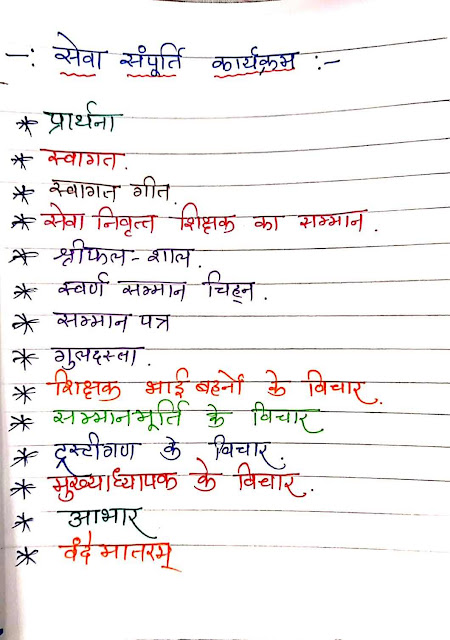 -: सेवा संपूर्ति कार्यक्रम :-
* प्रार्थना
* स्वागत.
* स्वागत गीत.
* सेवा निवृत्त शिक्षक का सम्मान.
* श्रीफल-शाल.
* स्वर्ण सम्मान चिह्न.
* सम्मान पत्र
* गुलदस्ता.
* शिक्षक भाई बहनों के विचार.
* सम्मानमूर्ति के विचार
* ट्रस्टीगण के विचार.
* मुख्याध्यापक के विचार.
* आभार
* वंदे मातरम्